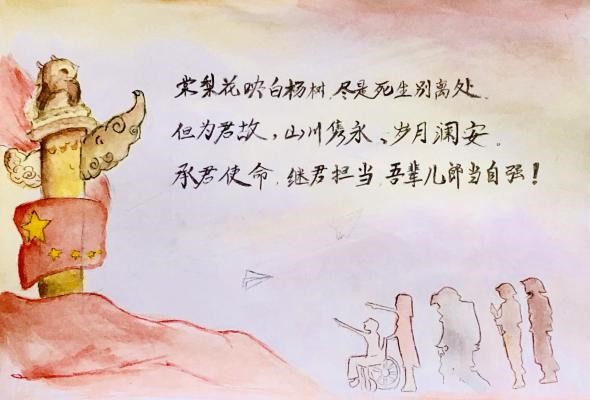 棠梨花映白杨树,尽是死生别离处。
但为君故,山川隽永、岁月澜安。
承君使命,继君担当,吾辈儿郎当自强!